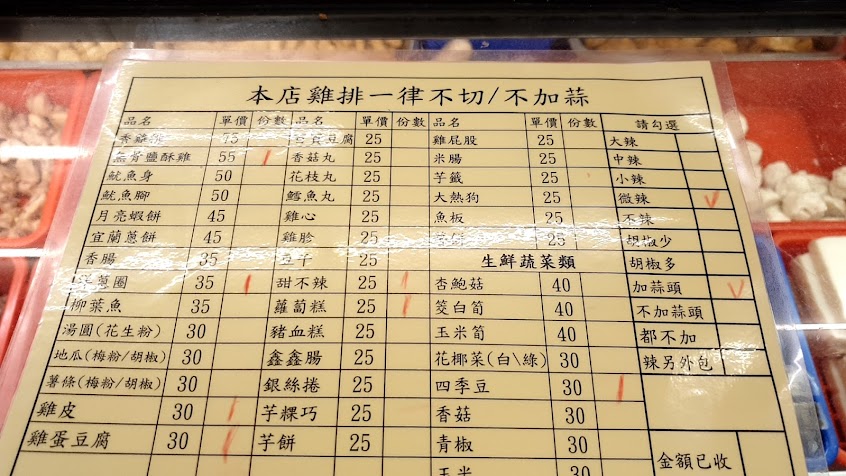 本店雞排一律不切/不加蒜
品名 單價 份數 品名 單價 份數 品名 單價 份數 請勾選
75 豆腐 25 雞屁股 25 大辣
鹽酥雞 55 香菇丸 25 米腸 25 中辣
魷魚身 50 花枝丸 25 芋籤 25 小辣
魷魚腳 50 鱈魚丸 25 大熱狗 25 微辣
月亮蝦餅 45 雞心 25 魚板 25 不辣
宜蘭蔥餅 45 雞胗 25 25 胡椒少
香腸 35 25 生鮮蔬菜類 胡椒多
洋蔥圈 35 甜不辣 25 杏鮑菇 40 加蒜頭
柳葉魚 35 蘿蔔糕 25 筊白筍 40 不加蒜頭
湯圓(花生粉) 30 豬血糕 25 玉米筍 40 都不加
地瓜(梅粉/胡椒) 30 鑫鑫腸 25 花椰菜(白\綠) 30 辣另外包
薯條(梅粉/胡椒) 30 銀絲捲 25 四季豆 30
雞皮 30 芋粿巧 25 香菇 30
雞蛋豆腐 30 芋餅 25 青椒 30 金額已收
玉米 30